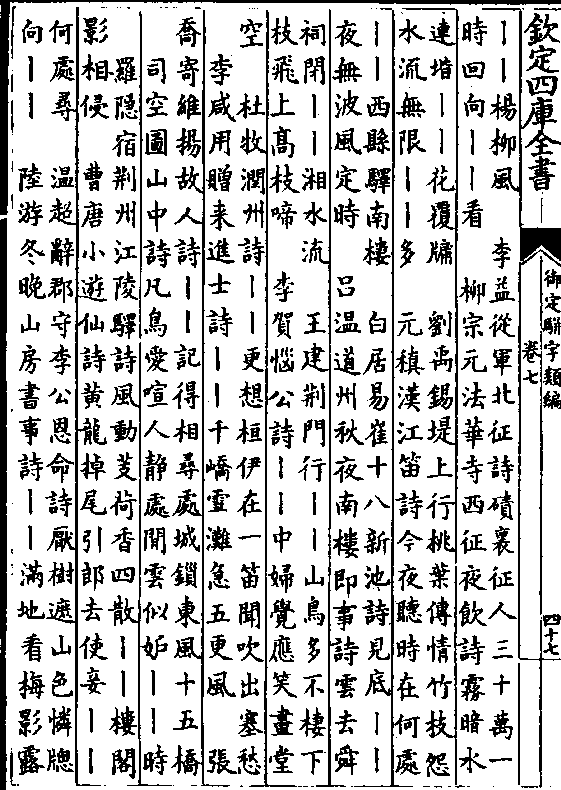 欽定四庫全書
御定駢字類編
卷七
四十七
｜｜楊柳風　李益從軍北征詩磧裏征人三十萬一
時回向｜｜看　柳宗元法華寺西征夜飲詩霧暗水
連堦｜｜花覆牖　劉禹錫堤上行桃葉傳情竹枝怨
水流無限｜｜多　元稹漢江笛詩今夜聽時在何處
｜｜西縣驛南樓　白居易崔十八新池詩見底｜｜
夜無波風定時　呂温道州秋夜南樓即事詩雲去舜
祠閉｜｜湘水流　王建荆門行｜｜山鳥多不棲下
枝飛上髙枝啼　李賀惱公詩｜｜中婦覺應笑畫堂
空　杜牧潤州詩｜｜更想桓伊在一笛聞吹出塞愁
李咸用贈来進士詩｜｜千嶠雪灘急五更風　張
喬寄維揚故人詩｜｜記得相尋處城鎖東風十五橋
司空圖山中詩凡鳥愛喧人静處閒雲似妬｜｜時
羅隠宿荆州江陵驛詩風動芰荷香四散｜｜樓閣
影相侵　曹唐小遊仙詩黄龍掉尾引郎去使妾｜｜
何處尋　温超辭郡守李公恩命詩厭樹遮山色憐牕
向｜｜　陸游冬晚山房書事詩｜｜滿地看梅影露